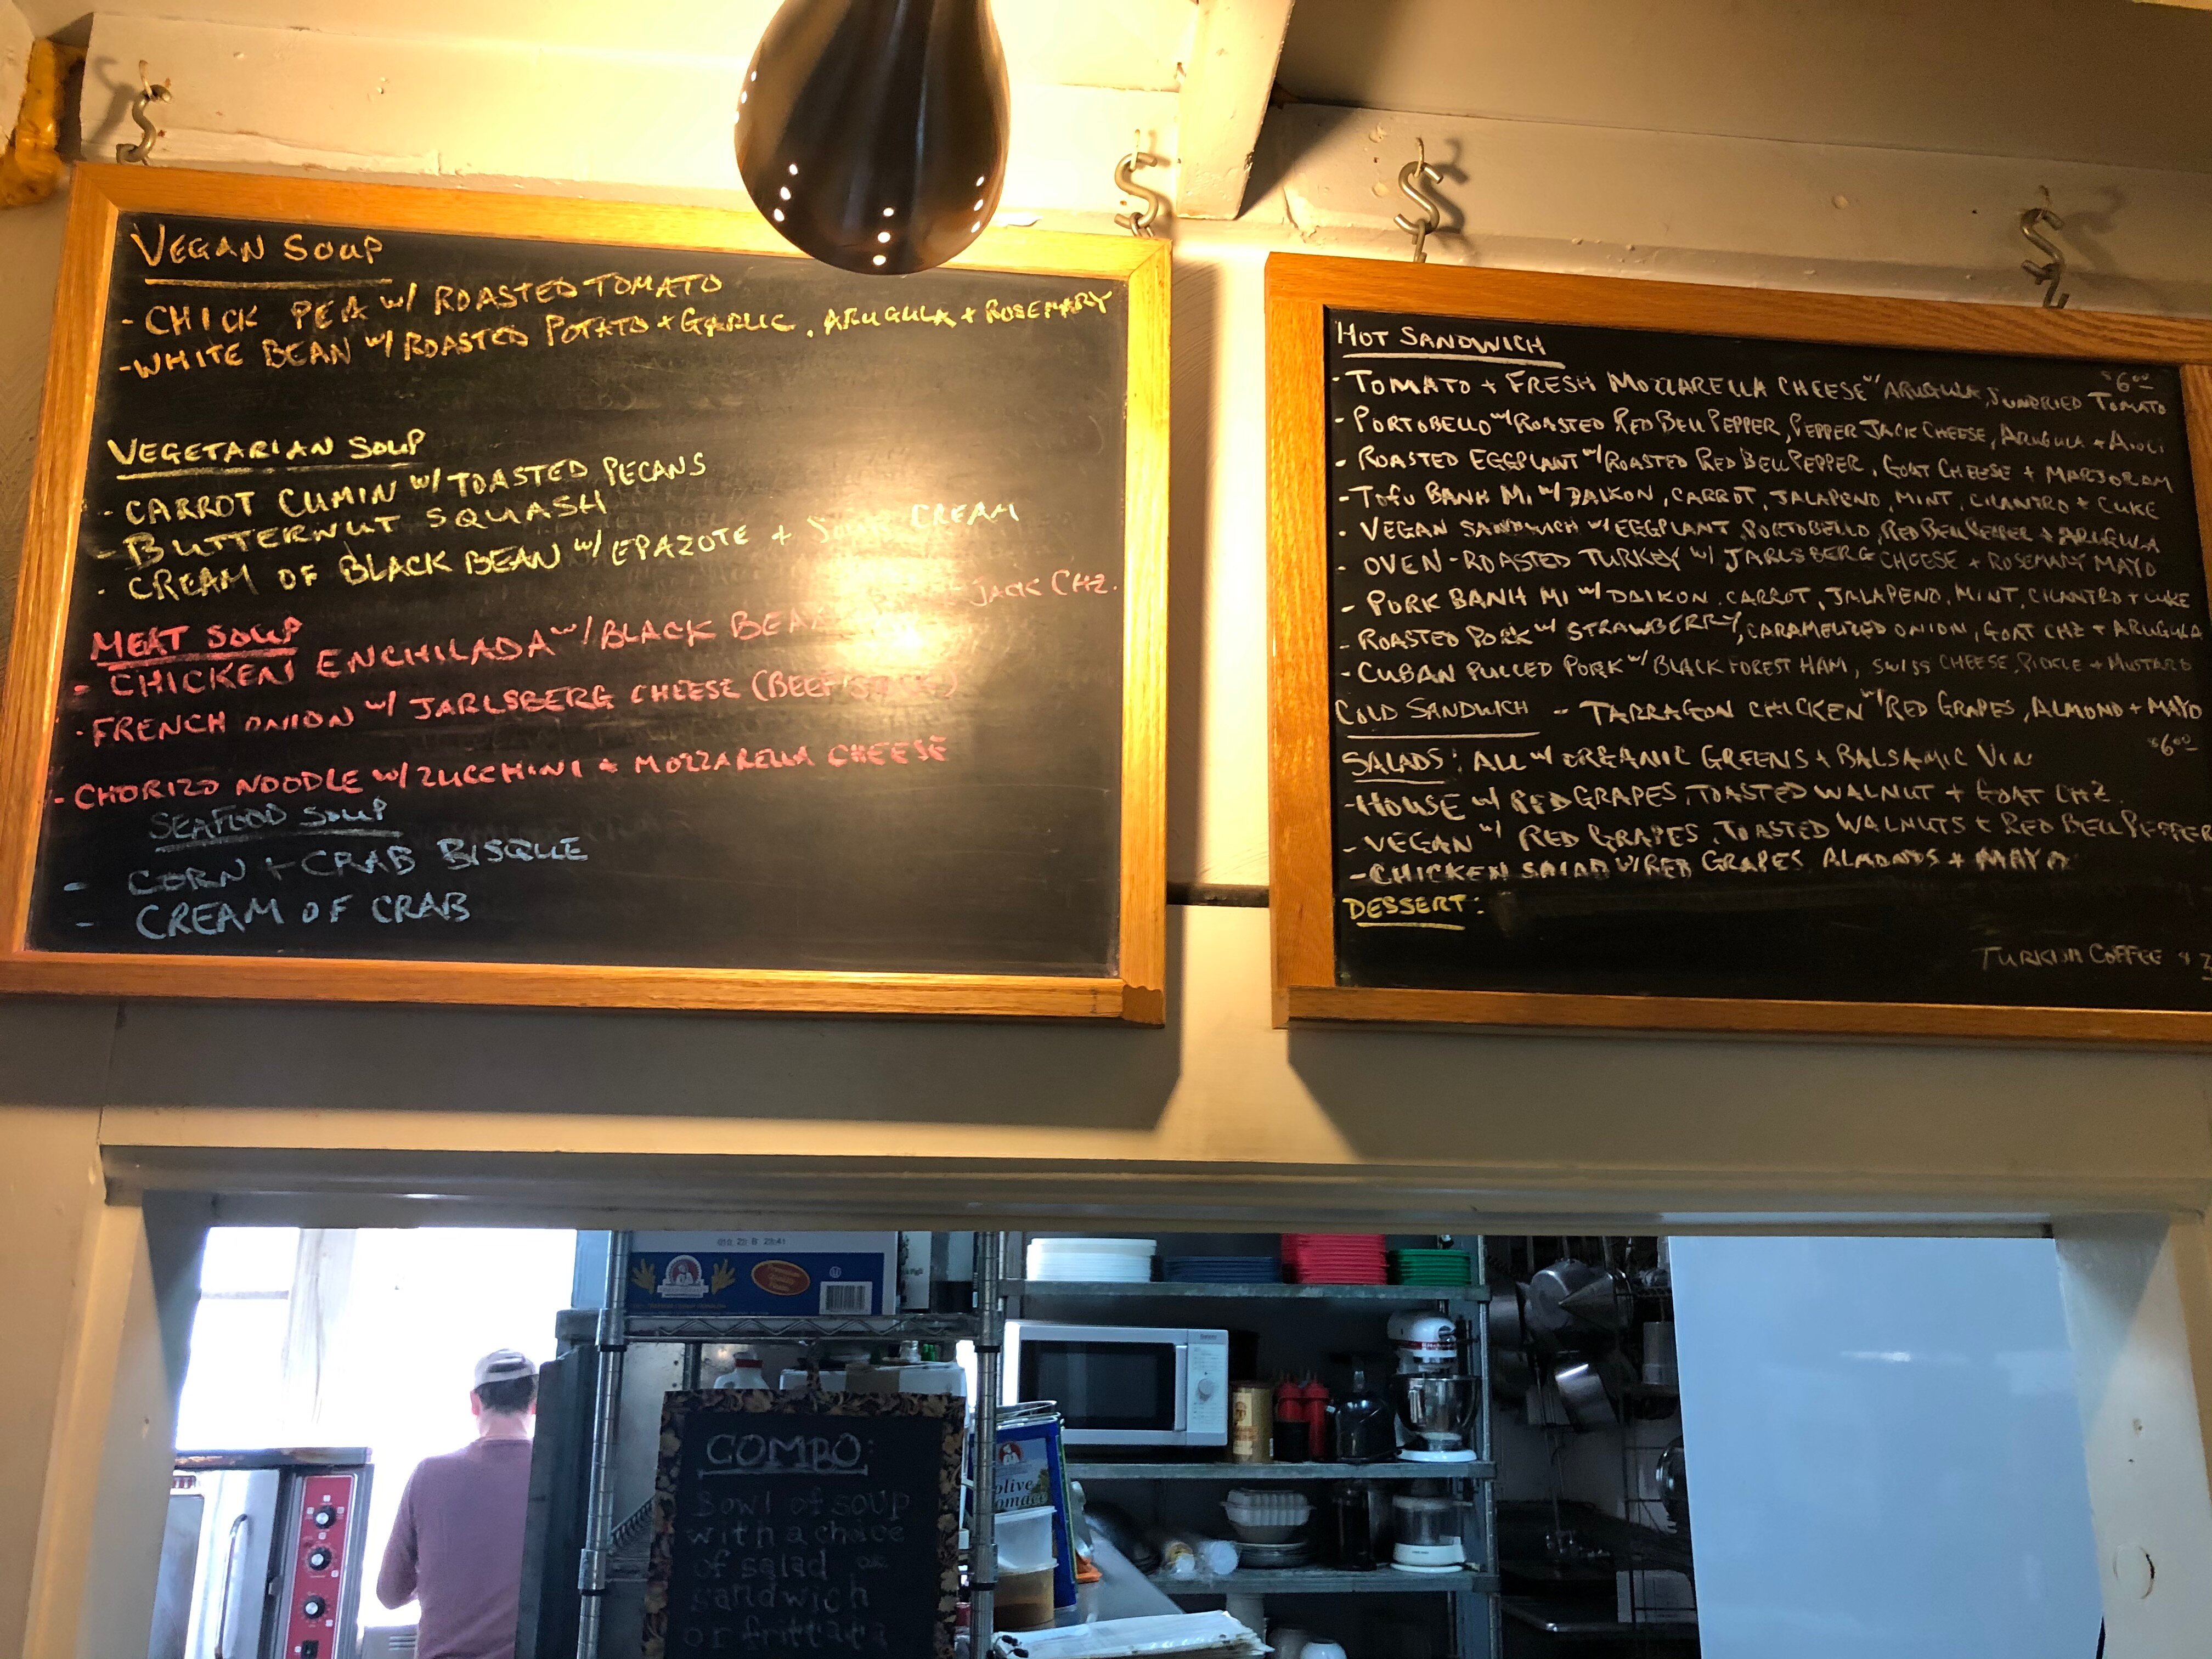 VEGAN SOUP
- CHICK PEA W/ ROASTED TOMATO
- WHITE BEAN W/ ROASTED POTATO + GARLIC, ARUGULA + ROSEMARY
VEGETARIAN SOUP
- CARROT CUMIN W/ TOASTED PECANS
- BUTTERNUT SQUASH
- CREAM OF BLACK BEAN W/ EPAZOTE + SOUR CREAM
MEAT SOUP
- CHICKEN ENCHILADA W/ BLACK BEAN JACK CHZ.
- FRENCH ONION W/ JARLSBERG CHEESE (BEEF
- CHORIZO NOODLE W/ ZUCCHINI + MOZZARELLA CHEESE
SEAFOOD SOUP
- CORN + CRAB BISQUE
- CREAM OF CRAB
HOT SANDWICH
$6.00
- TOMATO + FRESH MOZZARELLA CHEESE W/ ARUGULA, SUNDRIED TOMATO
- PORTOBELLO W/ ROASTED RED BELL PEPPER, PEPPER JACK CHEESE, ARUGULA + AIOLI
- ROASTED EGGPLANT W/ ROASTED RED BELL PEPPER, GOAT CHEESE + MARJORAM
- TOFU BANH MI W/ DAIKON, CARROT, JALAPENO, MINT, CILANTRO + CUKE
- VEGAN SANDWICH W/ EGGPLANT, PORTOBELLO, RED BELL PEPPER + ARUGULA
- OVEN-ROASTED TURKEY W/ JARLSBERG CHEESE + ROSEMARY MAYO
- PORK BANH MI W/ DAIKON, CARROT, JALAPENO, MINT, CILANTRO + CUKE
- ROASTED PORK W/ STRAWBERRY, CARAMELIZED ONION, GOAT CHZ + ARUGULA
- CUBAN PULLED PORK W/ BLACK FOREST HAM, SWISS CHEESE, PICKLE + MUSTARD
COLD SANDWICH - TARRAGON CHICKEN W/ RED GRAPES, ALMOND + MAYO
$6.00
SALADS: ALL W/ ORGANIC GREENS + BALSAMIC VIN
- HOUSE W/ RED GRAPES, TOASTED WALNUT + GOAT CHZ.
- VEGAN W/ RED GRAPES, TOASTED WALNUTS + RED BELL PEPPER
- CHICKEN SALAD W/ RED GRAPES, ALMONDS + MAYO
DESSERT:
TURKISH COFFEE $2
COMBO:
Bowl of soup
with a choice
of salad or
sandwich
or frittata
olive